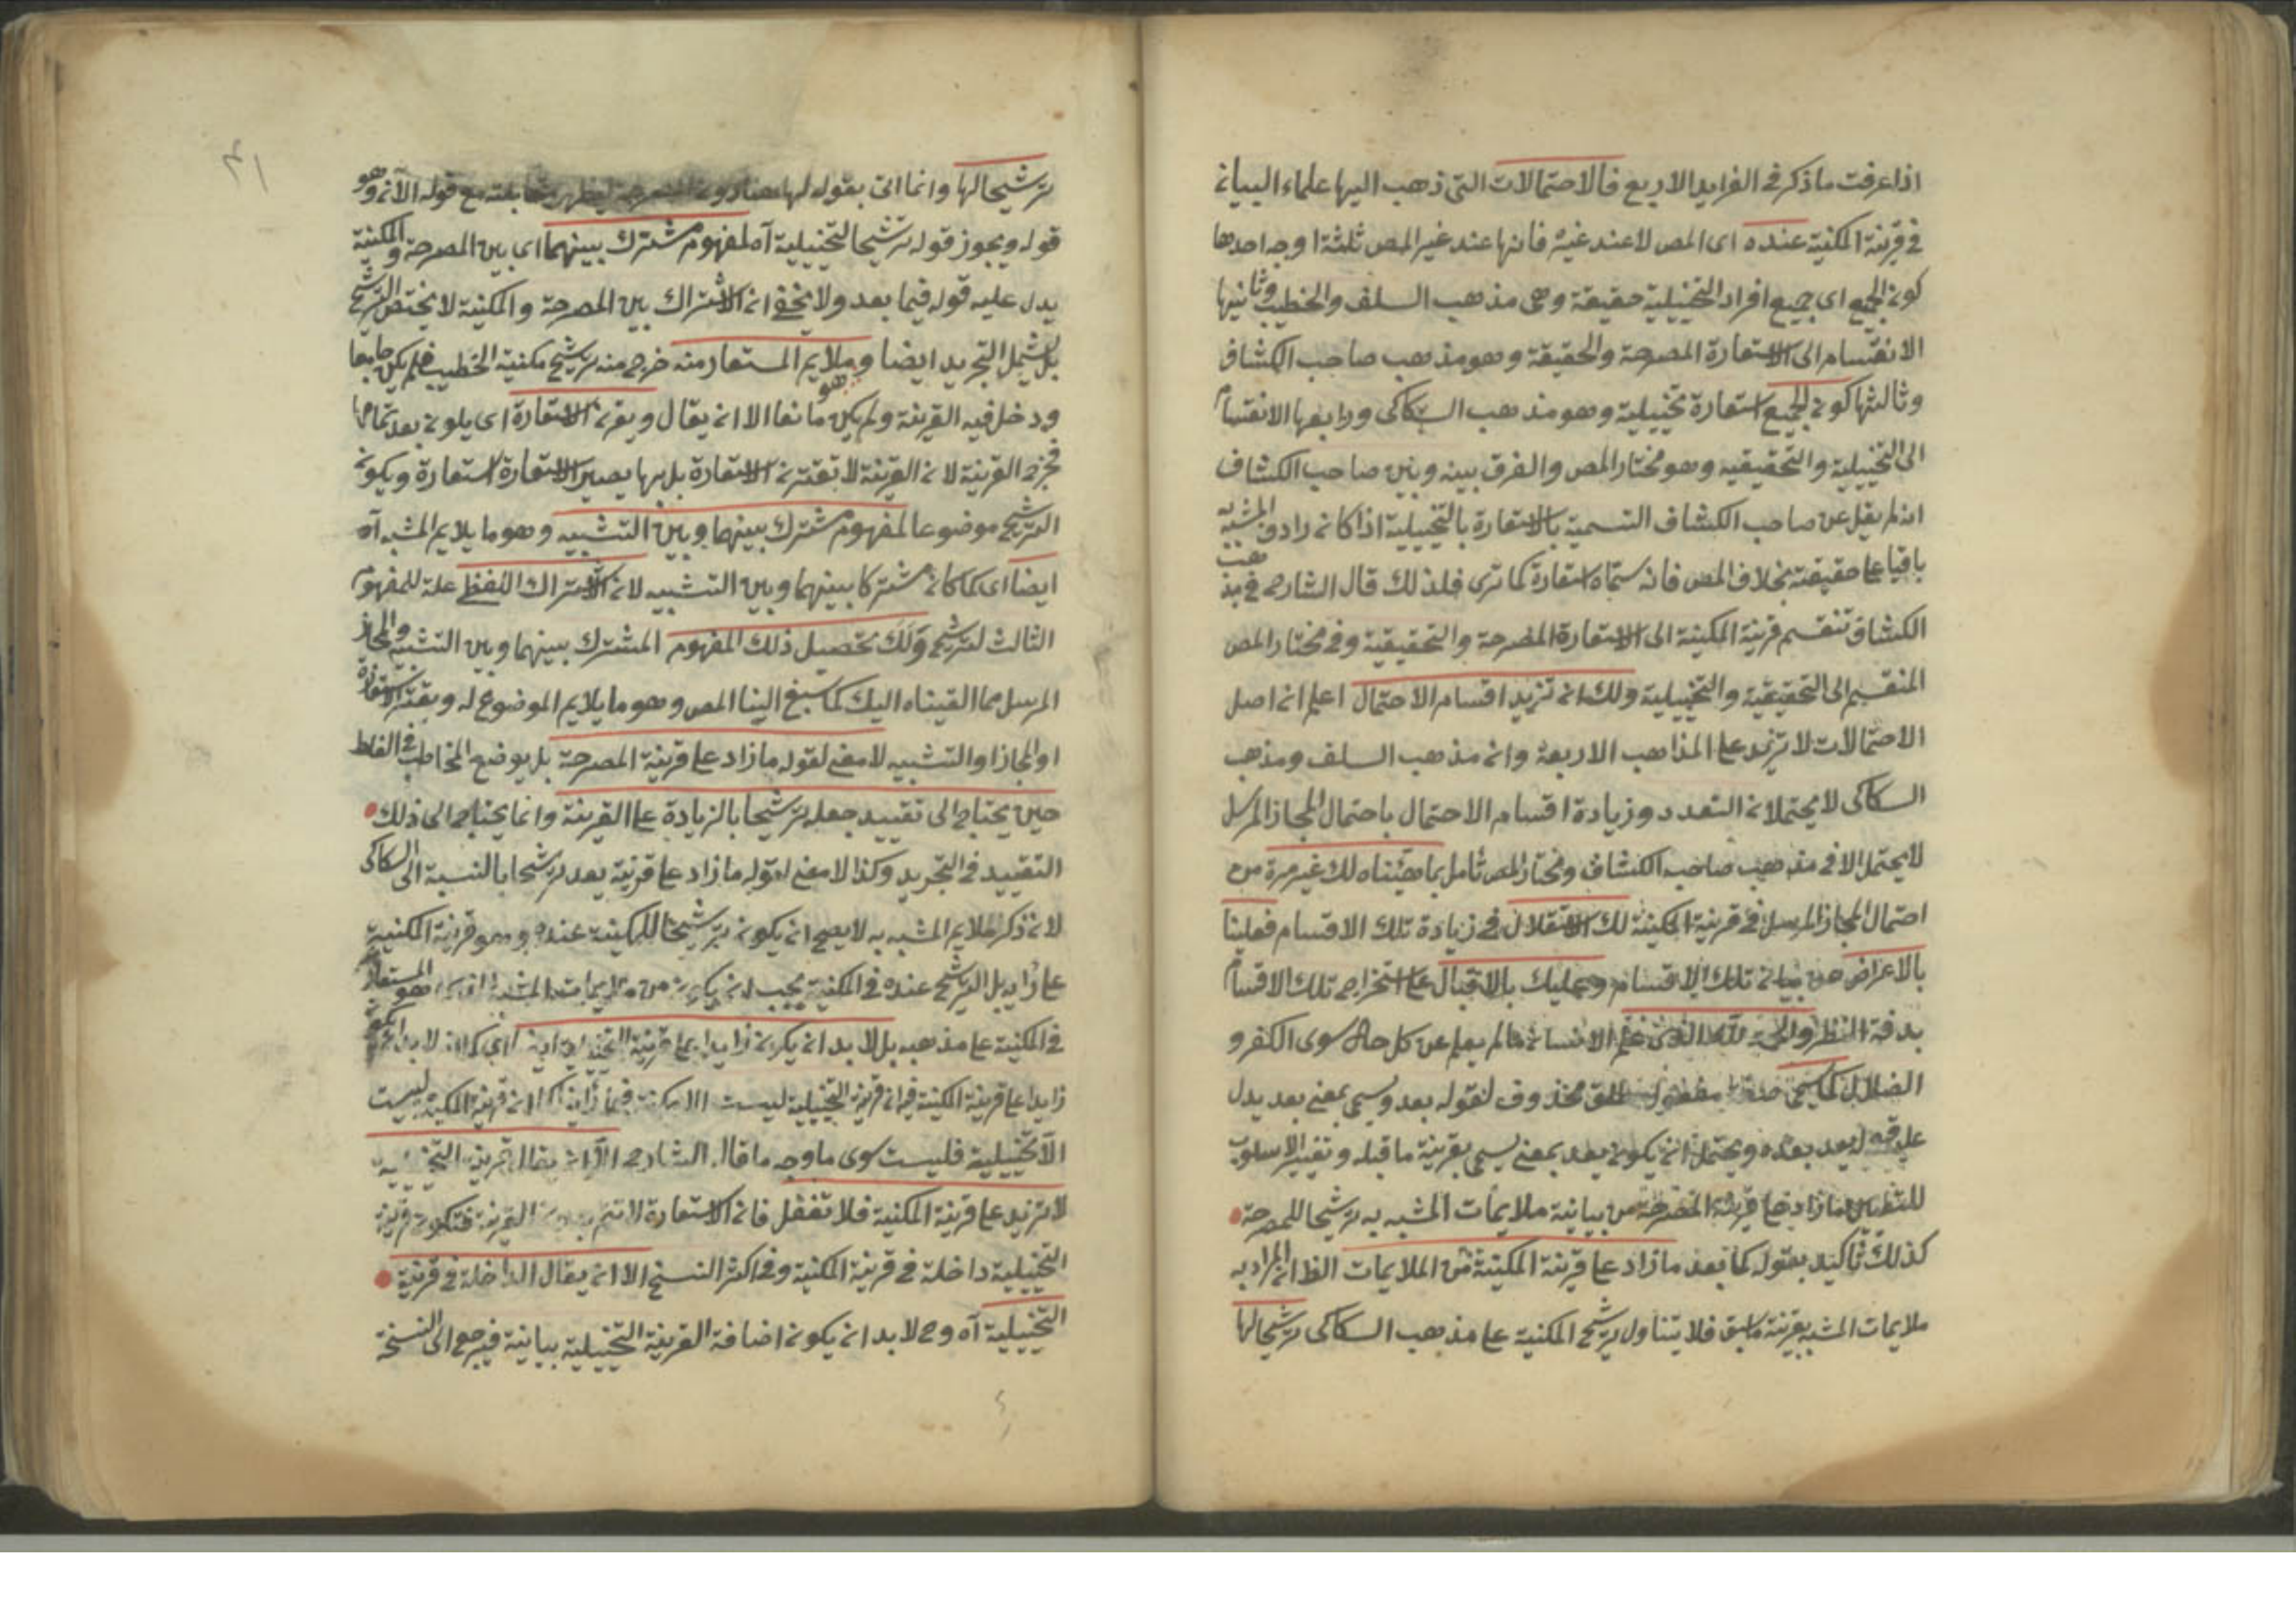 اذا عرفت ما ذكر في الفرايد الاربع فالاحتمالات التى ذهب اليها علماء البيان
في قرينة المكنية عنده اى المص لا عند غيره فانها عند غير المص ثلثة اوجه احدها
كون الجميع اى جميع افراد التخييلية حقيقة وهى مذهب السلف والخطيب وثانيها
الانقسام الى الاستعارة المصرحة والحقيقة وهو مذهب صاحب الكشاف
وثالثها كون الجميع استعارة تخييلية وهو مذهب السكاكى ورابعها الانقسام
الى التخييلية والتحقيقيه وهو مختار المص والفرق بينه وبين صاحب الكشاف
انه لم ينقل عن صاحب الكشاف التسمية بالاستعارة بالتخييلية اذا كان رادف المشبه به
باقيا على حقيقته بخلاف المص فانه سماه استعارة كما ترى فلذلك قال الشارح في مذهب
الكشاف تنقسم قرينة المكنية الى الاستعارة المصرحة والتحقيقية وفى مختار المص
المنقسم الى التحقيقية والتخييلية ولك ان تزيد اقسام الاحتمال اعلم ان اصل
الاحتمالات لا تزيد على المذاهب الاربعة وان مذهب السلف ومذهب
السكاكى لا يحتملان التعدد وزيادة اقسام الاحتمال باحتمال المجاز المرسل
لا يحتمل الا في مذهب صاحب الكشاف ومختار المص تأمل بما هيئناه لك غير مرة من
احتمال المجاز المرسل في قرينة المكنية لك الاستقلال في زيادة تلك الاقسام فعلينا
بالاعراض عن بيان تلك الاقسام وعليك بالاقبال على استخراج تلك الاقسام
بدقة النظر والحمد لله الذى علم الانسان مالم يعلم عن كل حال سوى الكفر و
الضلال كما يسمى محذوف لقوله بعد وسمى بمعنى بعد يدل
عليه بعده ويحتمل ان يكون يعد بمعنى يسمى بقرينة ما قبله وتغيير الاسلوب
ما زاد على قرينة المصرحة من بيانية ملايمات المشبه به ترشيحا للمصرحة
كذلك تأكيد بقوله كما يعد ما زاد على قرينة المكنية من الملايمات الظ ان المراد به
ملايمات المشبه بقرينة ما سبق فلا يتناول ترشيح المكنية على مذهب السكاكى ترشيحا لها
ترشيحا لها وانما اتى بقوله لها مع قوله الآتى وهو
قوله ويجوز قوله ترشيحا للتخييلية آه لمفهوم مشترك بينهما اى بين المصرحة والمكنية
يدل عليه قوله فيما بعد ولا يخفى ان الاشتراك بين المصرحة والمكنية لا يختص الترشيح
بل يشمل التجريد ايضا وملايم المستعار منه خرج منه ترشيح مكنية الخطيب فلم يكن جامعا
ودخل فيه القرينة ولم يكن مانعا الا ان يقال ويقرن الاستعارة اى يلون بعد تمامها
فخرج القرينة لان القرينة لا تقترن الاستعارة بل بها يصير الاستعارة استعارة ويكون
الترشيح موضوعا لمفهوم مشترك بينهما وبين التشبيه وهو ما يلايم المشبه آه
ايضا اى كما كان مشتركا بينهما وبين التشبيه لان الاشتراك اللفظى علة للمفهوم
الثالث لترشيح ولك تحصيل ذلك المفهوم المشترك بينهما وبين التشبيه والمجاز
المرسل مما القيناه اليك كما سبق الينا المص وهو ما يلايم الموضوع له ويقترن الاستعارة
او المجاز او التشبيه لا معنى لقوله ما زاد على قرينة المصرحة بل يوضع المخاطب في الغلط
حين يحتاج الى تقييد جعله ترشيحا بالزيادة على القرينة وانما يحتاج الى ذلك
التقييد في التجريد وكذا لا معنى لقوله ما زاد على قرينة يعد ترشيحا بالنسبة الى السكاكى
لان ذكر ملايم المشبه به لا يصح ان يكون ترشيحا للمكنية عنده وهو قرينة المكنية
على رايه بل الترشيح عنده في المكنية يجب ان يكون من ملايمات المشبه المستعار
في المكنية على مذهبه بل لا بد ان يكون زايدا على قرينة التخييلية اى كما لا بد ان يكون
زايدا على قرينة المكنية فان قرينة التخييلية ليست الا قرينة المكنية ليست
الا تخييلية فليست سوى ما وجه ما قال الشارح الا ان يقال قرينة التخييلية
لا تزيد على قرينة المكنية فلا تغفل فان الاستعارة لا تتم بدون القرينة فتكون قرينة
التخييلية داخلة في قرينة المكنية وفى اكثر النسخ الا ان يقال الداخلة في قرينة
التخييلية آه وح لا بد ان يكون اضافة القرينة التخييلية بيانية فيرجع الى النسخة